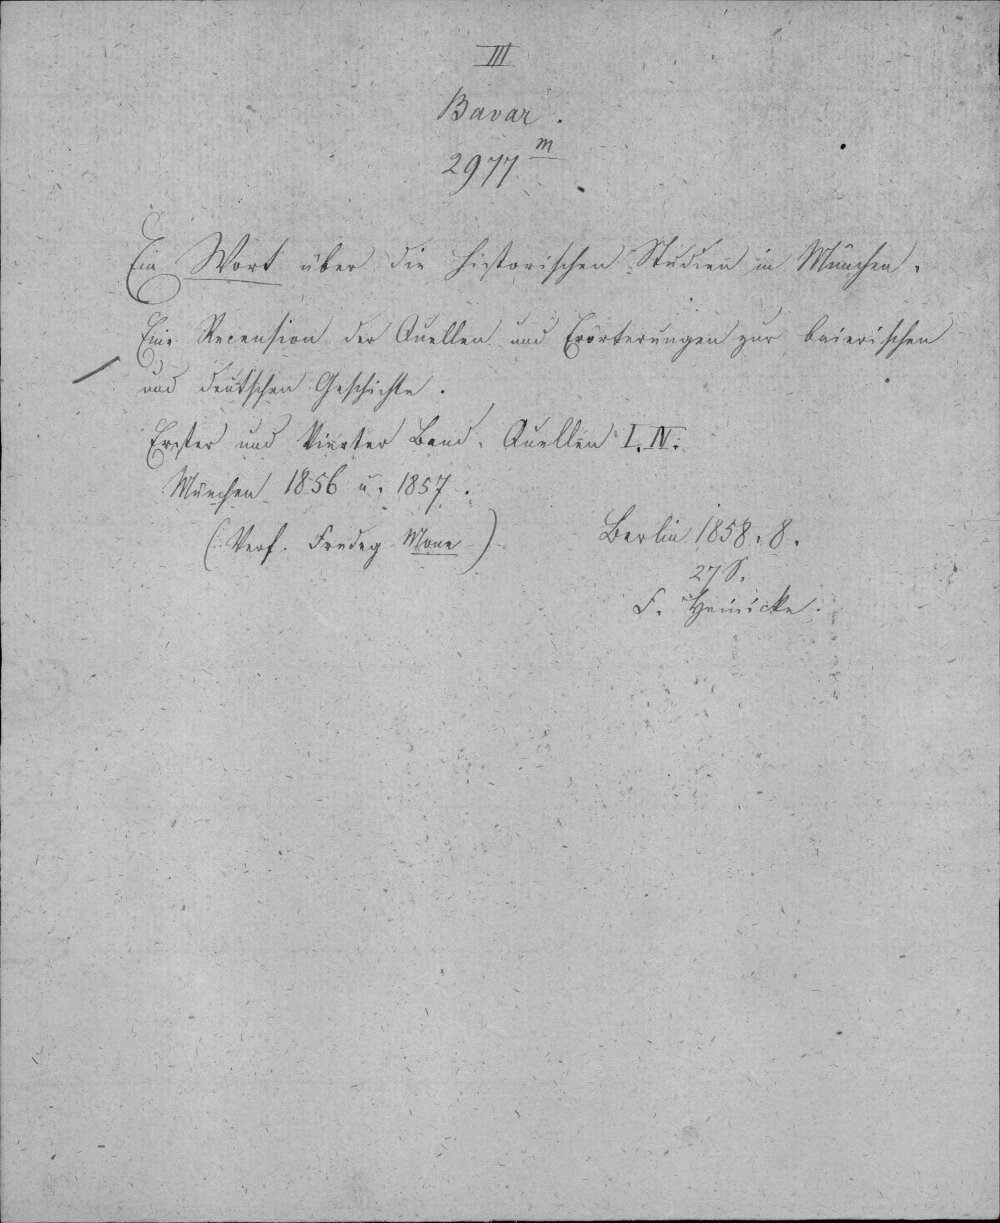 III
Bavar.
2977 m
Ein Wort über die historischen Studien in München.
Eine Recension der Quellen und Erörterungen zur baierischen
und deutschen Geschichte.
Erster und Vierter Band. Quellen I. IV.
München 1856 u. 1857.
(Verf. Fredeg. Mone)
Berlin 1858. 8.
27 S.
F. Heinicke.